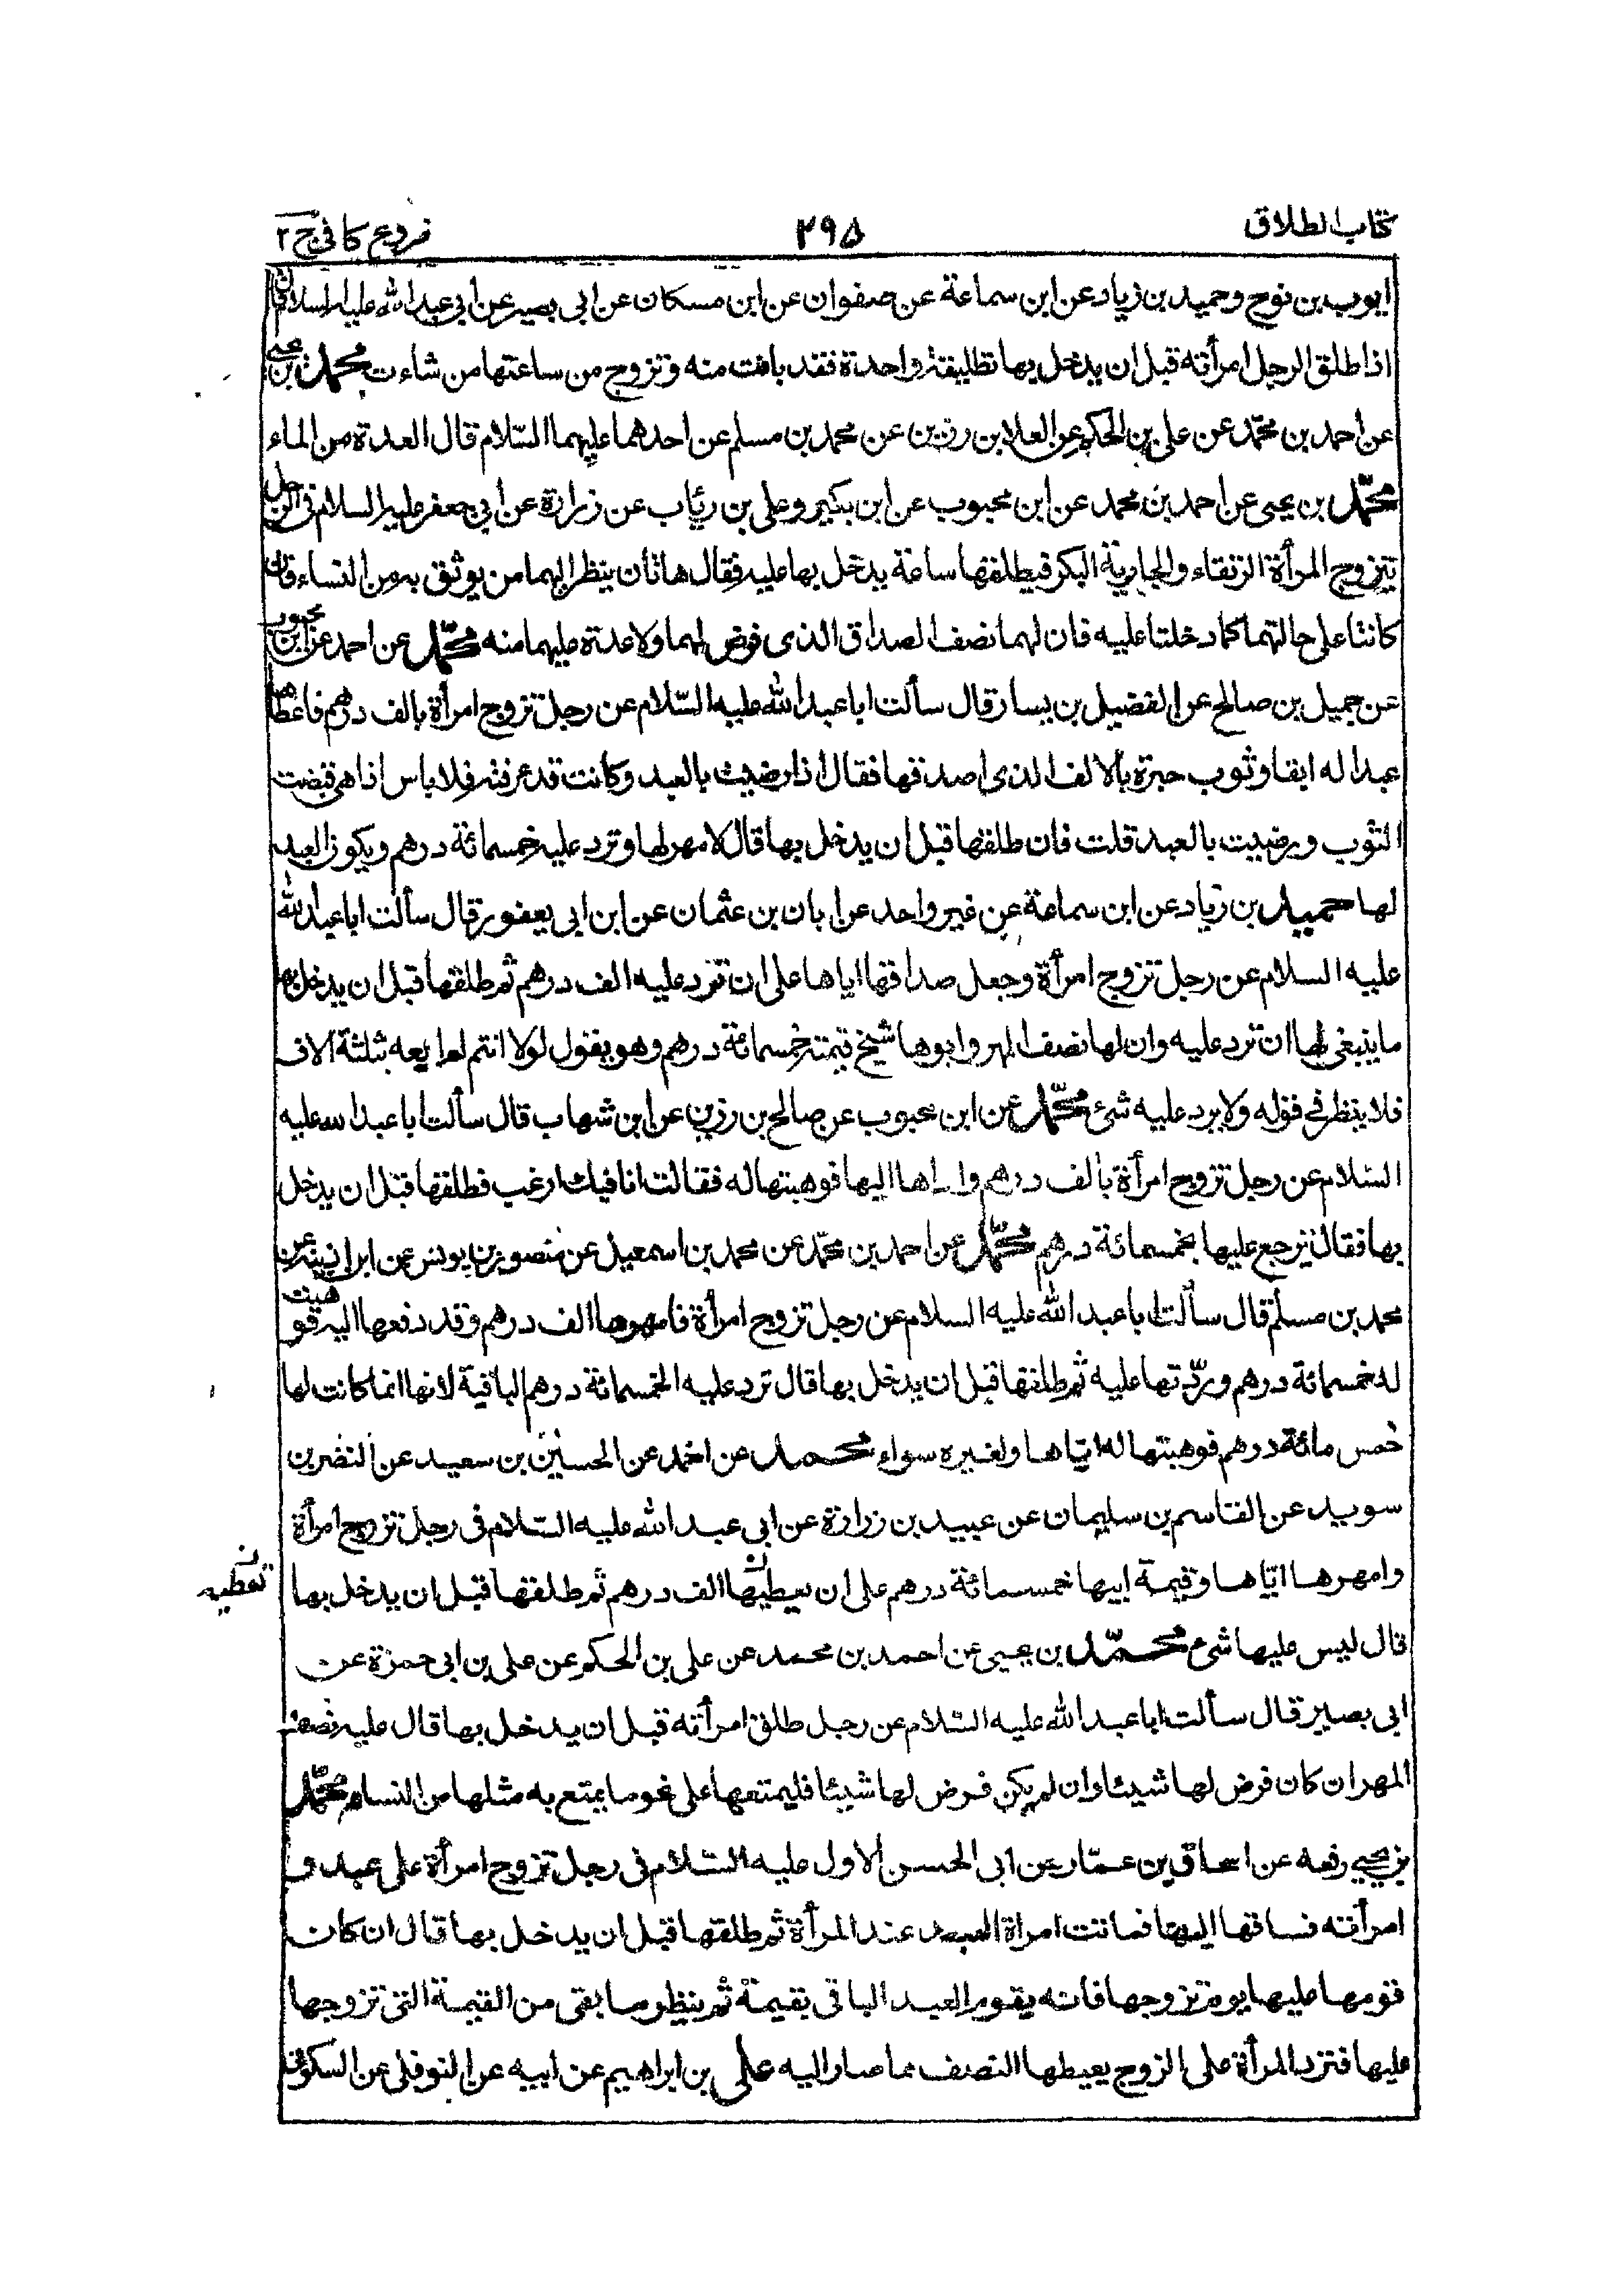 كتاب الطلاق
٢٩٥
فروع كافى ج ٢
ايوب بن نوح وحميد بن زياد عن ابن سماعة عن صفوان عن ابن مسكان عن ابى بصير عن ابى عبد الله عليه السلام قال
اذا طلق الرجل امرأته قبل ان يدخل بها تطليقة واحدة فقد بانت منه وتزوج من ساعتها من شاءت محمد بن يحيى
عن احمد بن محمّد عن على بن الحكم عن العلا بن رزين عن محمد بن مسلم عن احدهما عليهما السّلام قال العدة من الماء
محمّد بن يحيى عن احمد بن محمد عن ابن محبوب عن ابن بكير وعلى بن رئاب عن زرارة عن ابى جعفر عليه السلام فى الرجل
يتزوج المرأة الرتقاء والجارية البكر فيطلقها ساعة يدخل بها عليه فقال هاتان ينظر اليهما من يوثق به من النساء فان
كانتا على حالتهما كما دخلتا عليه فان لهما نصف الصداق الذى فرض لهما ولا عدة عليهما منه محمّد عن احمد عن ابن محبوب
عن جميل بن صالح عن الفضيل بن يسار قال سألت ابا عبد الله عليه السّلام عن رجل تزوج امرأة بالف درهم فاعطاها
عبدا له ابقا وثوب حبرة بالالف الذى اصدقها فقال اذا رضيت بالعبد وكانت قد عرفته فلا باس اذا هى قبضت
الثوب ورضيت بالعبد قلت فان طلقها قبل ان يدخل بها قال لا مهر لها وترد عليه خمسمائة درهم ويكون العبد
لها حميد بن زياد عن ابن سماعة عن غير واحد عن ابان بن عثمان عن ابن ابى يعفور قال سألت ابا عبد الله
عليه السلام عن رجل تزوج امرأة وجعل صداقها اباها على ان ترد عليه الف درهم ثم طلقها قبل ان يدخل بها
ما ينبغى لها ان ترد عليه وان لها نصف المهر وابوها شيخ قيمته خمسمائة درهم وهو يقول لولا انتم لم ابعه بثلثة الاف
فلا ينظر فى قوله ولا يرد عليه شئ محمّد عن ابن محبوب عن صالح بن رزين عن ابن شهاب قال سألت ابا عبد الله عليه
السّلام عن رجل تزوج امرأة بألف درهم واداها اليها فوهبتها له فقالت انا فيك ارغب فطلقها قبل ان يدخل
بها فقال يرجع عليها بخمسمائة درهم محمّد عن احمد بن محمّد عن محمد بن اسمعيل عن منصور بن يونس عن ابن اذينه عن
محمد بن مسلم قال سألت ابا عبد الله عليه السلام عن رجل تزوج امرأة فامهرها الف درهم وقد دفعها اليه فوهبت
له خمسمائة درهم وردّتها عليه ثم طلقها قبل ان يدخل بها قال ترد عليه الخمسمائة درهم الباقية لانها انما كانت لها
خمس مائة درهم فوهبتها له ايّاها ولغيره سواء محمد عن احمد عن الحسين بن سعيد عن النضر بن
سويد عن القاسم بن سليمان عن عبيد بن زرارة عن ابى عبد الله عليه السّلام فى رجل تزوج امرأة
وامهرها ايّاها وقيمة ابيها خمسمائة درهم على ان يعطيها الف درهم ثم طلقها قبل ان يدخل بها
تعطيه
قال ليس عليها شئ محمّد بن يحيى عن احمد بن محمد عن على بن الحكم عن على بن ابى حمزة عن
ابى بصير قال سألت ابا عبد الله عليه السّلام عن رجل طلق امرأته قبل ان يدخل بها قال عليه نصف
المهر ان كان فرض لها شيئا وان لم يكن فرض لها شيئا فليمتعها على نحو ما يمتع به مثلها من النساء محمّد
بن يحيى رفعه عن اسحاق بن عمّار عن ابى الحسن الاول عليه السّلام فى رجل تزوج امرأة على عبد و
امرأته فساقها اليها فماتت امراة العبد عند المرأة ثم طلقها قبل ان يدخل بها قال ان كان
قومها عليها يوم تزوجها فانه يقوم العبد الباقى بقيمة ثم ينظر ما بقى من القيمة التى تزوجها
عليها فترد المرأة على الزوج يعيطها النصف مما صار اليه على بن ابراهيم عن ابيه عن النوفلى عن السكونى